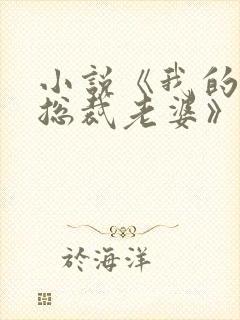 小說《我的
總裁老婆》
於海洋